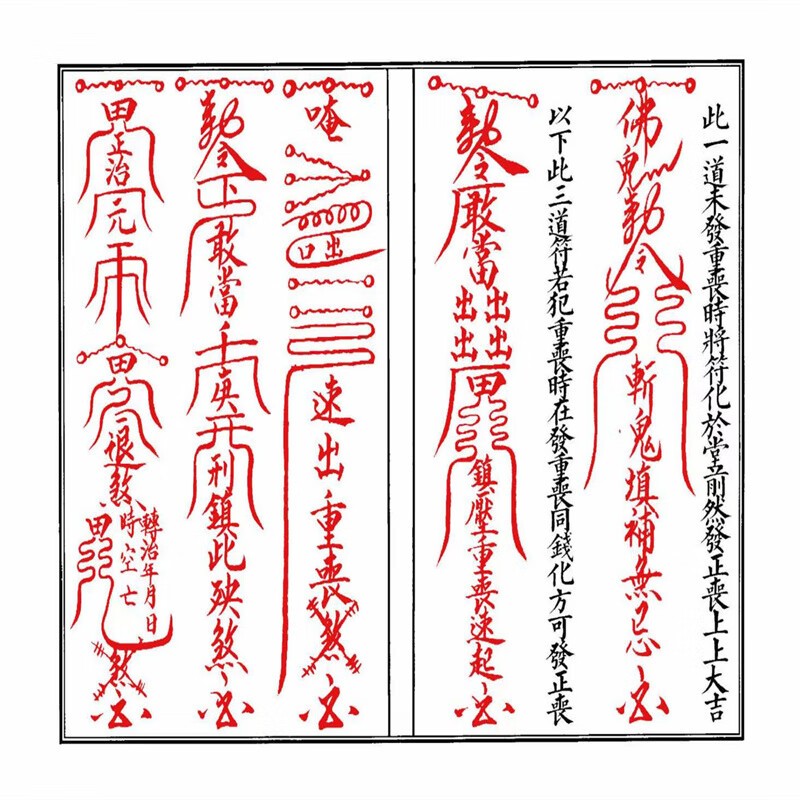 此一道未發重喪時將符化於堂前然發正喪上上大吉
佛鬼勅令斬鬼填補無忌
以下此三道符若犯重喪時在發重喪同錢化方可發正喪
勅令敢當出出出出田鎮壓重喪速起
唵
出口
速出重喪煞
勅令下敢當壬庚开刑鎮此殃煞
田正治元
田退煞
轉治年月日
時空亡
田
煞